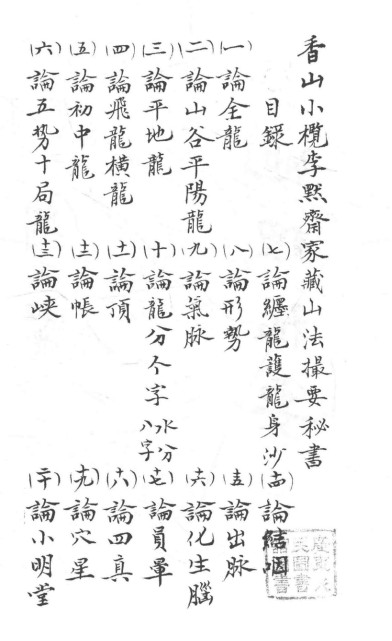 香山小欖李默齋家藏山法撮要秘書
目錄
(一)論全龍
(二)論山谷平陽龍
(三)論平地龍
(四)論飛龍橫龍
(五)論初中龍
(六)論五势十局龍
(七)論纏龍護龍身沙
(八)論形势
(九)論氣脉
(十)論龍分个字 水分八字
(十一)論頂
(十二)論帳
(十三)論峽
(十四)論結咽
(十五)論出脉
(十六)論化生腦
(十七)論員暈
(十八)論四真
(十九)論穴星
(二十)論小明堂